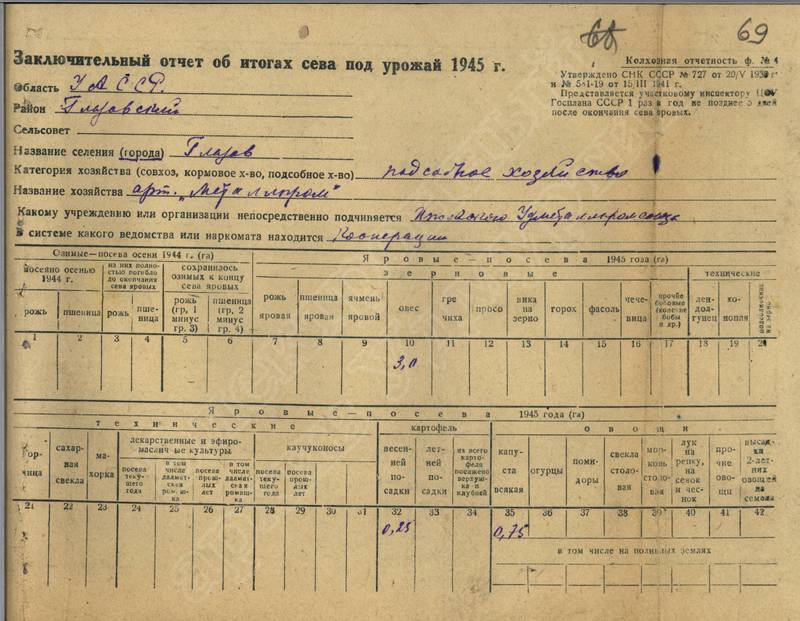 69
Заключительный отчет об итогах сева под урожай 1945 г.
Колхозная отчетность ф. № 4
Утверждено СНК СССР № 727 от 20/V 1939 г.
и № 581-19 от 15/III 1941 г.
Представляется участковому инспектору ЦСУ
Госплана СССР 1 раз в год не позднее 5 дней
после окончания сева яровых.
Область УАССР.
Район Глазовский
Сельсовет
Название селения (города) Глазов
Категория хозяйства (совхоз, кормовое х-во, подсобное х-во) подсобное хозяйство
Название хозяйства арт. „Металлпром"
Какому учреждению или организации непосредственно подчиняется Удметаллпромсоюза
В системе какого ведомства или наркомата находится Кооперации
Озимые—посева осени 1944 г. (га)
Яровые—посева 1945 года (га)
посеяно осенью 1944 г.
из них полностью погибло до окончания сева яровых
сохранилось озимых к концу сева яровых
зерновые
технические
рожь
пшеница
рожь
пшеница
рожь (гр. 1 минус гр. 3)
пшеница (гр. 2 минус гр. 4)
рожь яровая
пшеница яровая
ячмень яровой
овес
гречиха
просо
вика на зерно
горох
фасоль
чечевица
прочие бобовые (конские бобы и др.)
лен-долгунец
конопля
подсолнечник на зерно
1 2 3 4 5 6 7 8 9 10 11 12 13 14 15 16 17 18 19 20
3,0
Яровые—посева 1945 года (га)
технические
картофель
овощи
горчица
сахарная свекла
махорка
лекарственные и эфиромасличные культуры
каучуконосы
весенней посадки
летней посадки
из всего картофеля посажено верхушками клубней
капуста всякая
огурцы
помидоры
свекла столовая
морковь столовая
лук на репку, на севок и чеснок
прочие овощи
высадки 2-летних овощей на семена
посева текущего года
в том числе далматская ромашка
посева прошлых лет
в том числе далматская ромашка
посева текущего года
посева прошлых лет
21 22 23 24 25 26 27 28 29 30 31 32 33 34 35 36 37 38 39 40 41 42
0,25 0,75
в том числе на поливных землях